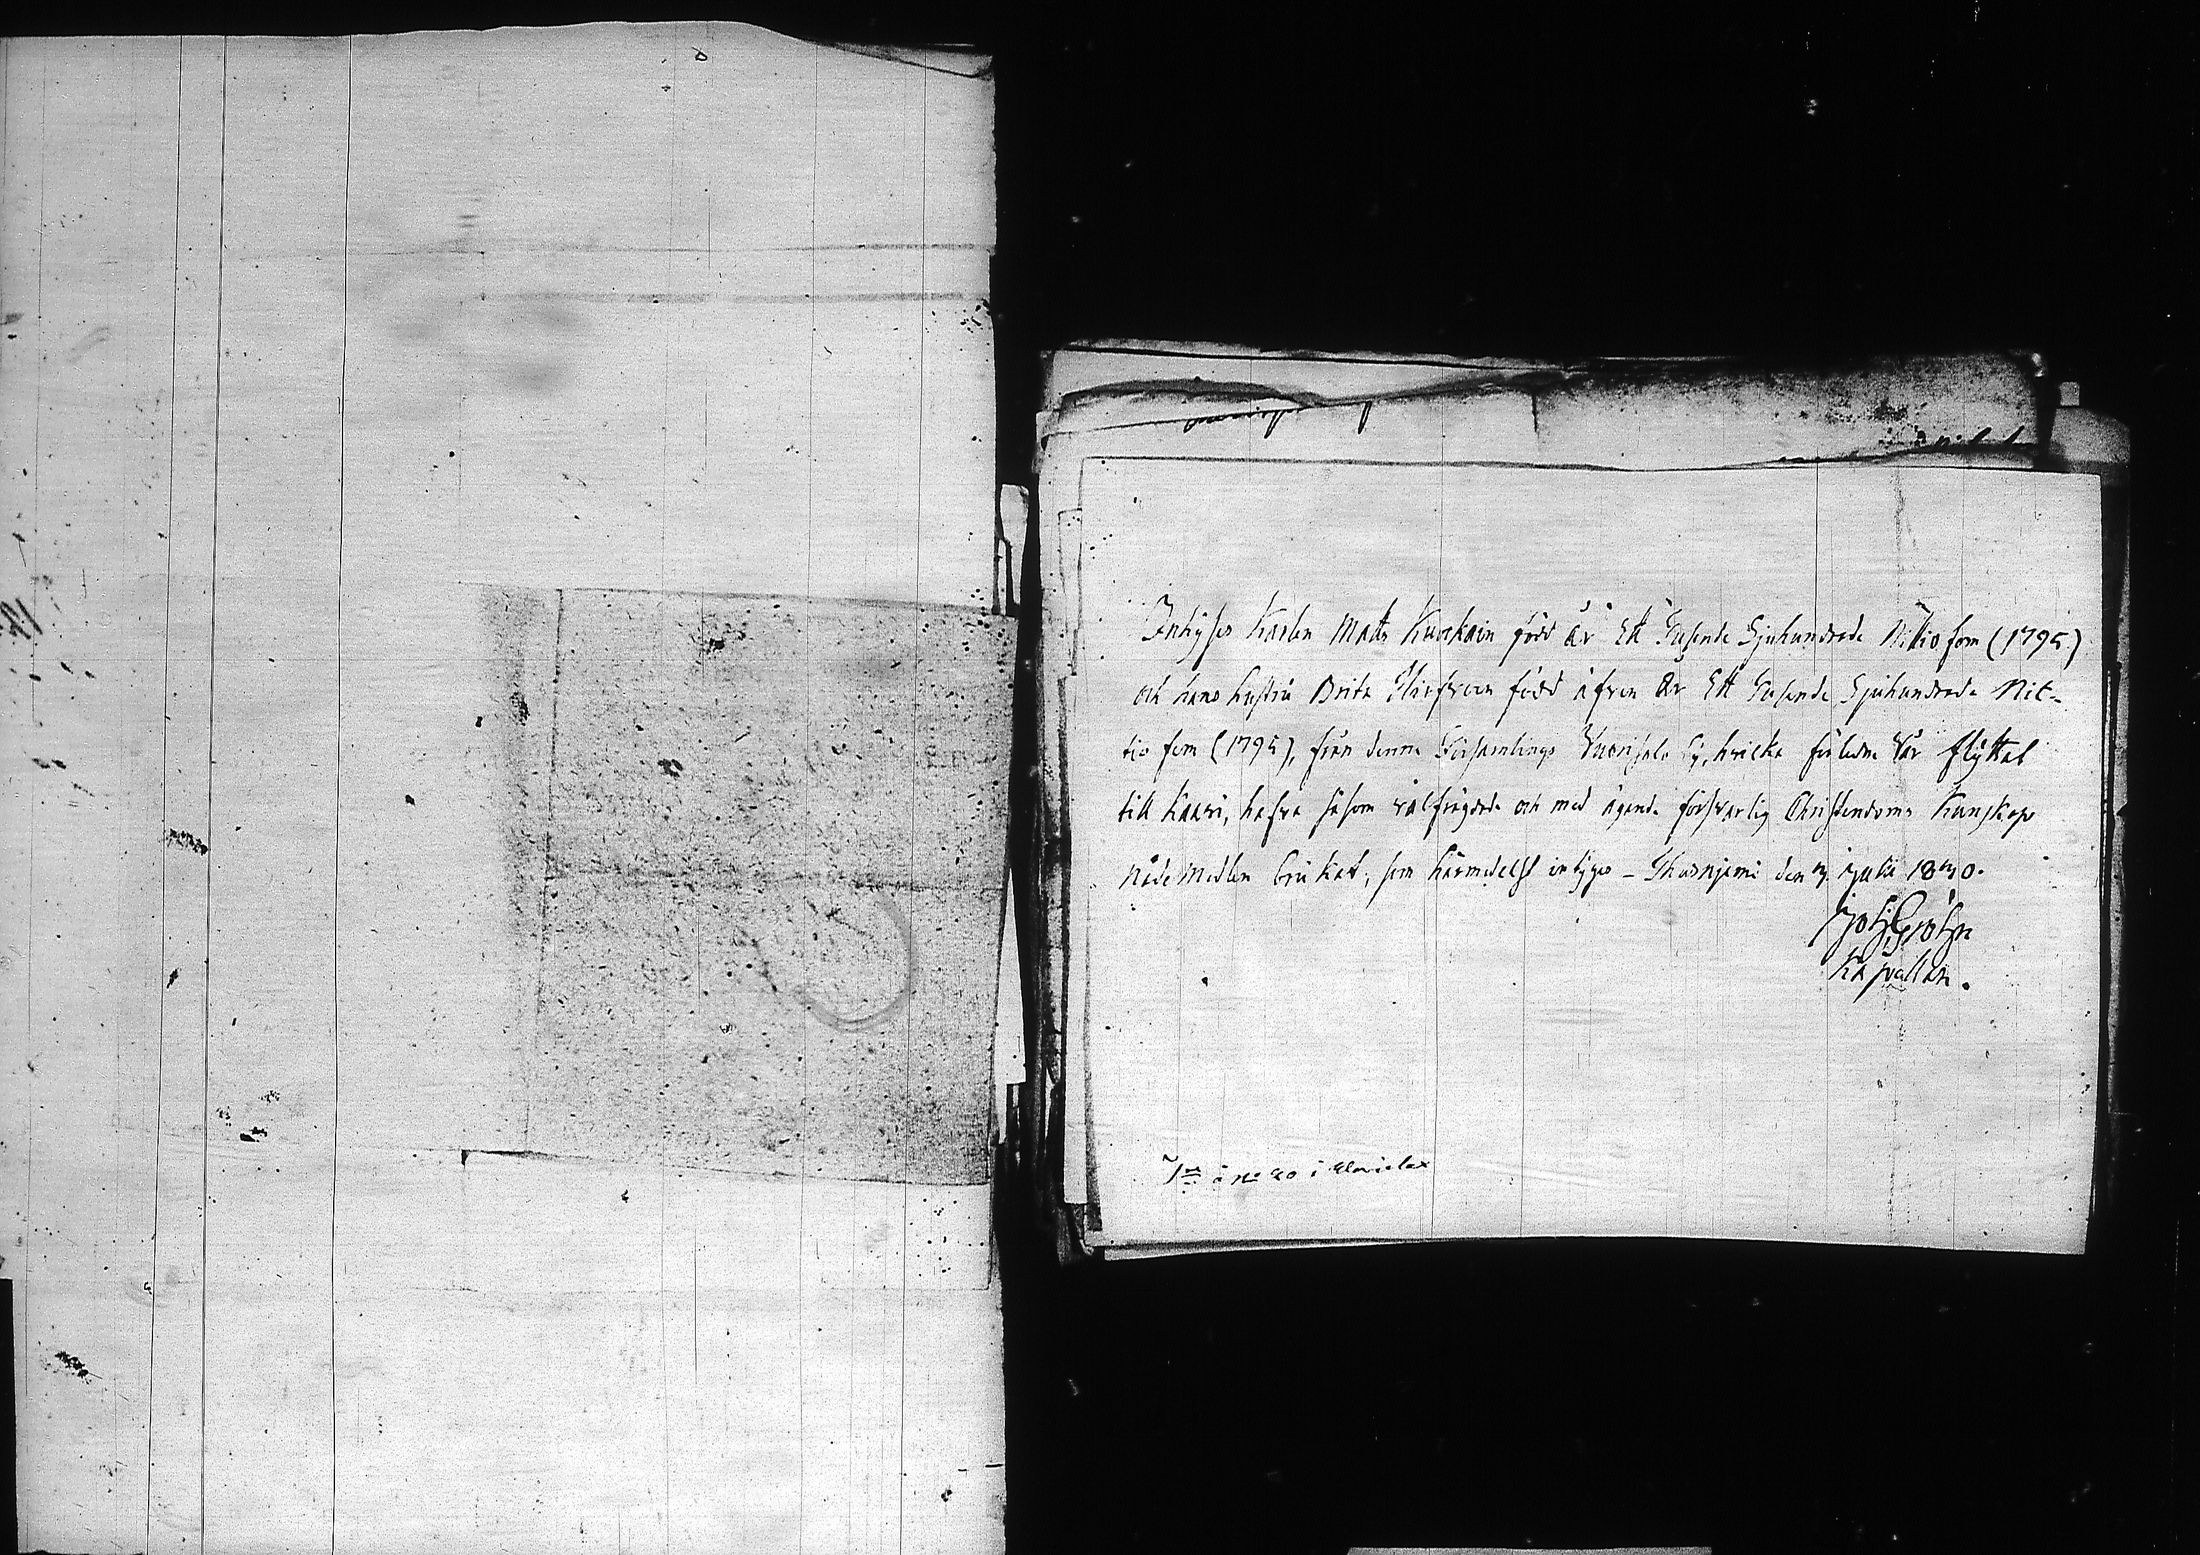 Inhyses Karlen Matts Kuoskain född År Ett Tusende Sjuhundrade Nittio fem (1795)
och hans hustru Brita Hirfvoin född äfven År Ett Tusende Sjuhundrade Nit-
tio fem (1795), från denna Församlings Vuorijalo by, hvilka förledne Vår flyttat
till Kaavi, hafva såsom välfrägdade och med ägande försvarlig Christendoms Kunskap
Nådemedlen brukat; som härmedelst intygas – Thusnjemi den 3. julii 1830.
Joh. Gröhn
Kapellan.
i Kavielax